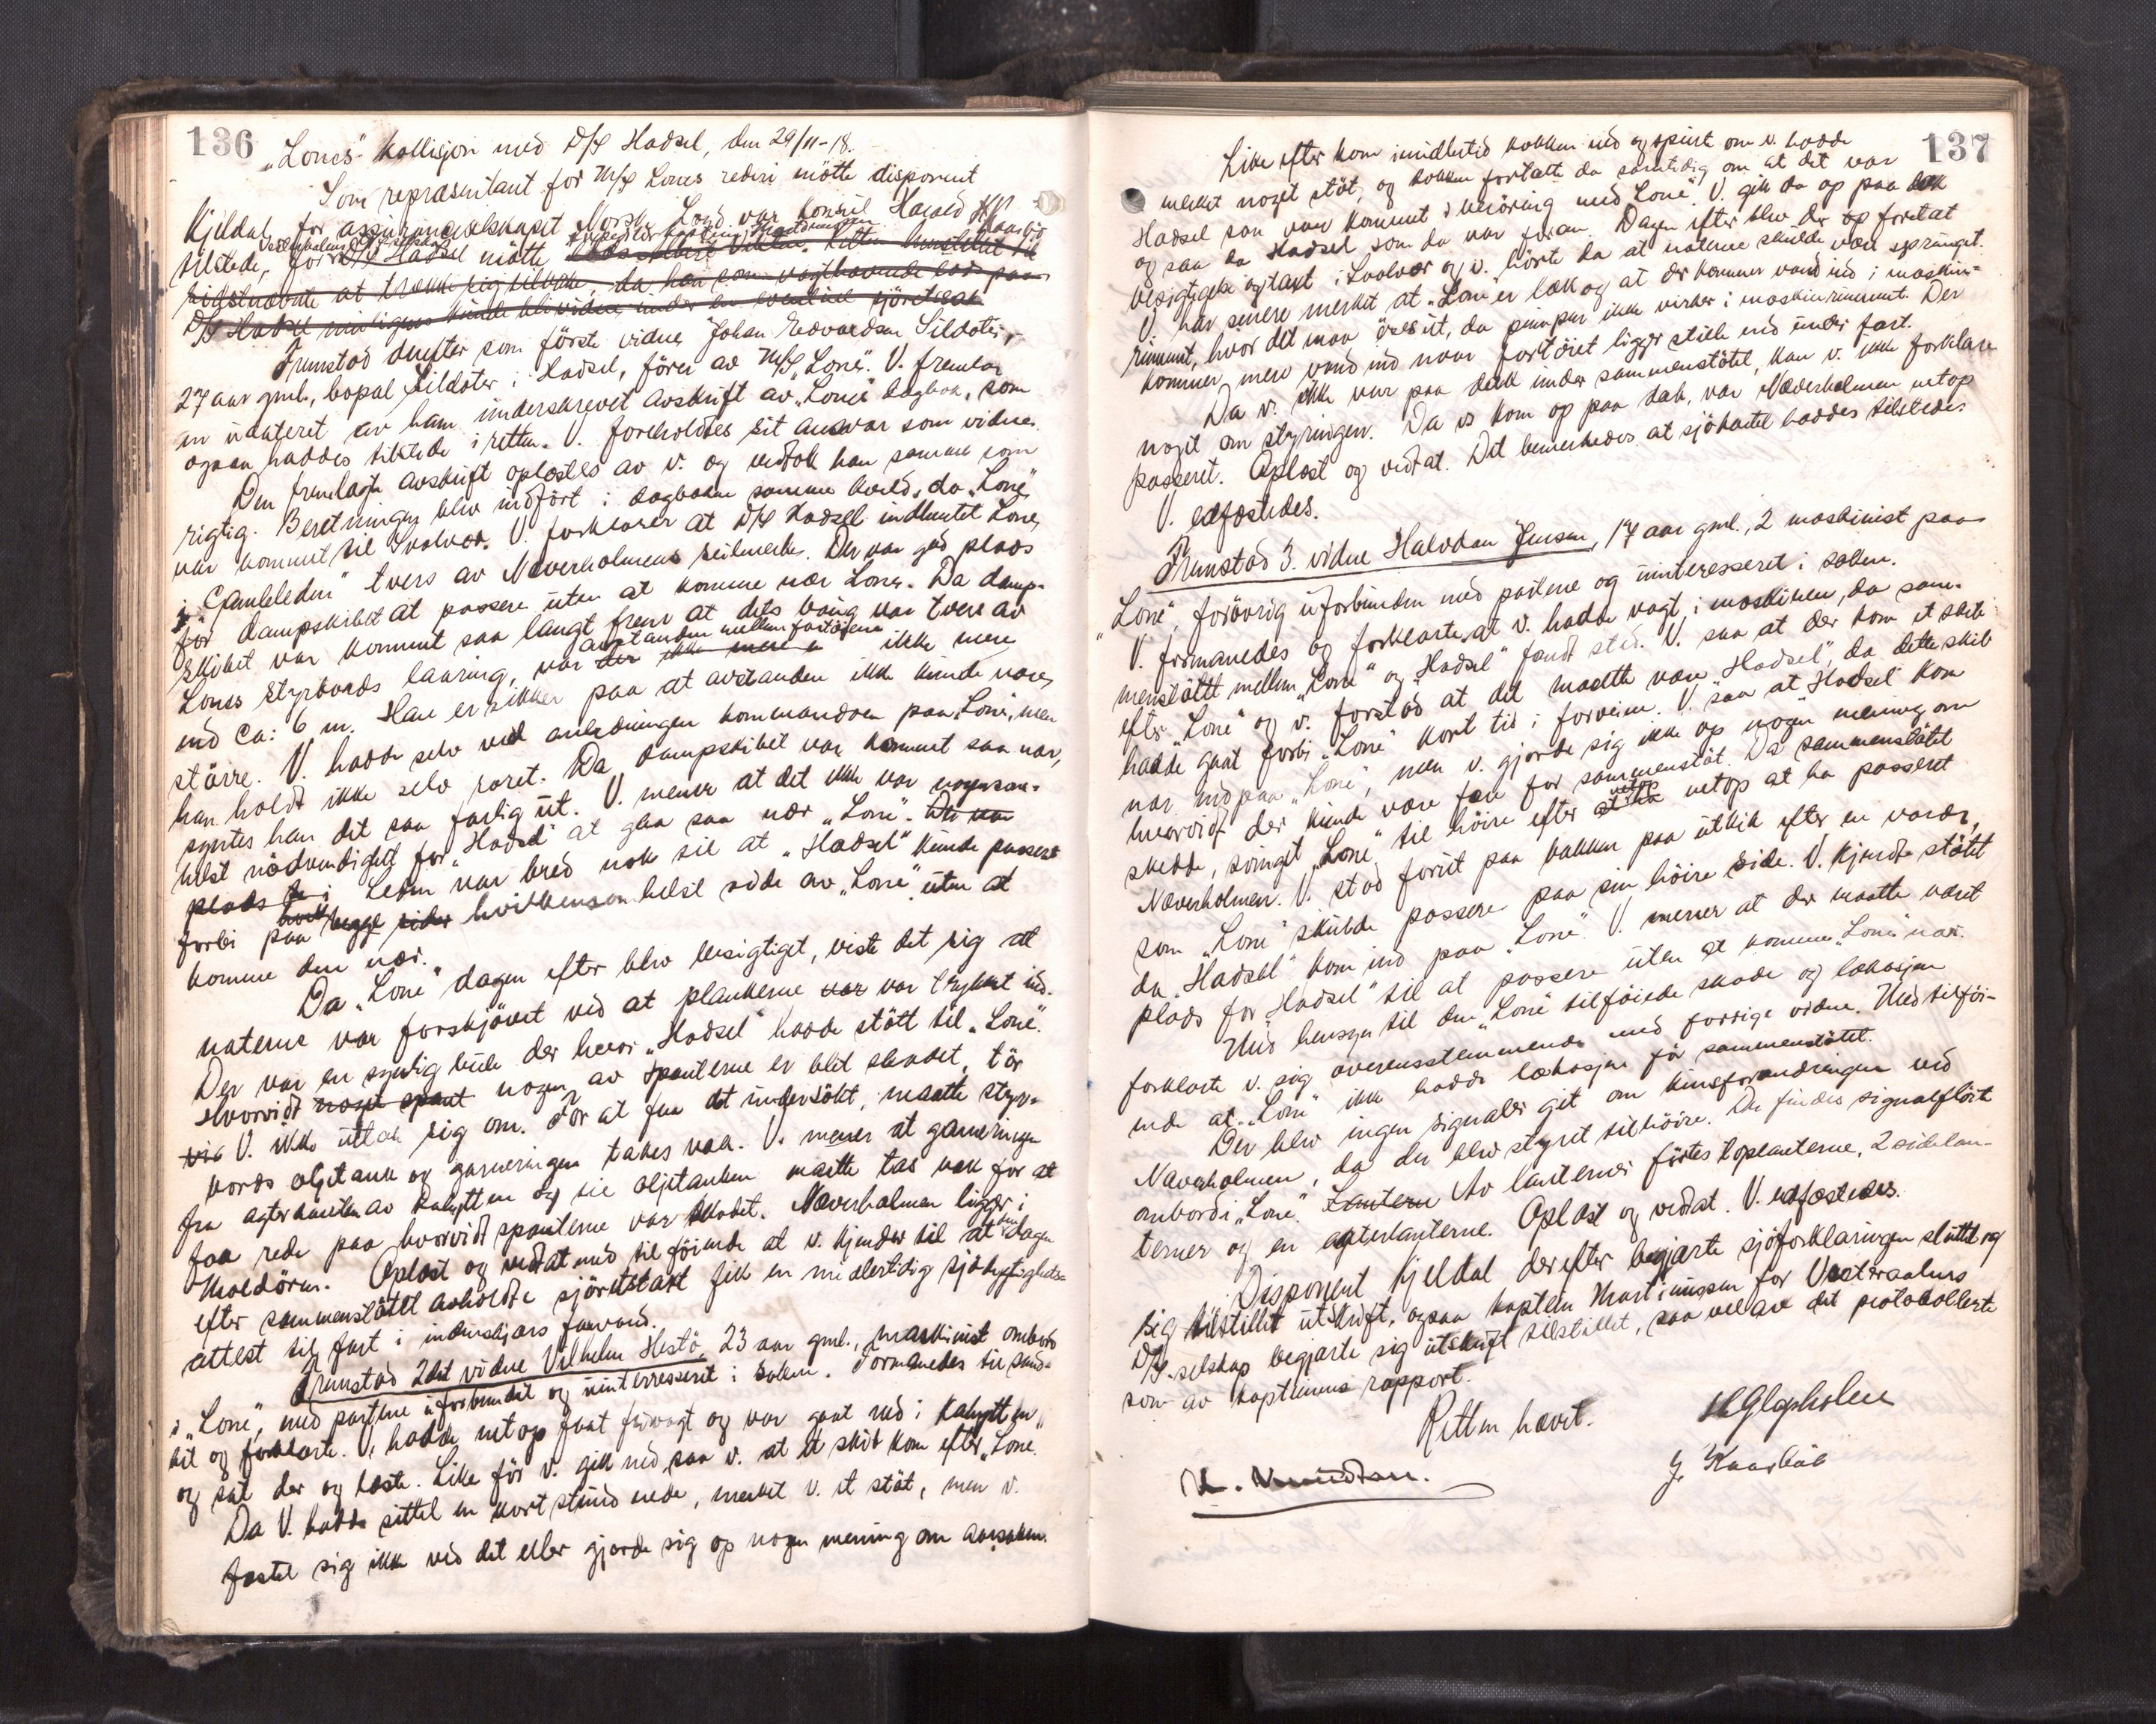 136
"Lones" kollisjon med D/S Hadsel, den 29/11-18.
Som repræsentant for M/S Lones rederi mötte disponent
Kjeldal, for assuranceselskapet Norske Lloyd var konsul Harald
tilstede, for D/S Hadsel mötte
sidstnævnte at trække sig tilbake, da han som vagthavende paa
D/S Hadsel muligens kunde bli vidne under en eventuel sjöretssak
Fremstod derefter som förste vidne Johan Edvardsen Sildöter,
27 aar gml., bopæl Sildöter i Hadsel, förer av M/S "Lone". V. fremla
en datert av ham underskrevet avskrift av "Lone" dagbok, som
ogsaa haddes tilstede i retten. V. foreholdtes sit ansvar som vidne.
Den fremlagte avskrift oplæstes av v. og vedtok han samme som
rigtig. Beretningen blev indfört i dagboken samme kveld, da "Lone"
var kommet til Svolvær. V. forklarer at D/S Hadsel indhentet Lone
i "Gamleleden" tvers av Næverholmens seilmerke. Der var god plads
för dampskibet at passere uten at komme nær Lone. Da damp-
skibet var kommet saa langt frem at dets baug var tvers av
Lones styrbords laaring, var der ikke mere avstanden mellem fartöiene ikke mere
end ca: 6 m. Han er sikker paa at avstanden ikke kunde være
större. V. hadde selv ved anledningen kommandoen paa Lone, men
han holdt ikke selv roret. Da dampskibet var kommet saa nær,
syntes han det saa farlig ut. V. mener at det ikke var nogensom-
helst nödvendighet for "Hadsel" at gaa saa nær "Lone". Der var
plads Leden var bred nok til at "Hadsel" kunde passere
forbi paa begge sider hvilkensomhelst side av "Lone" uten at
komme den nær.
Da "Lone" dagen efter blev besigtiget, viste det sig at
naterne var forskjövet ved at plankerne var var trykket ind.
Der var en synlig bule der hvor "Hadsel" hadde stött til "Lone".
Hvorvidt noget spant nogen av spanterne er blit skadet, tör
V. ikke uttale sig om. For at faa det undersökt, maatte styr-
bords oljetank og garneringen takes væk. V. mener at garneringen
fra agterkanten av kahytten og til oljetanken maatte tas væk for at
faa rede paa hvorvidt spanterne var skadet. Næverholmen ligger i
Moldören. Oplæst og vedtat med tilföiende at v. kjender til at dagen
efter sammenstötet avholdte sjöretstakst fik en midlertidig sjödygtigheds-
attest til fart i indenskjærs farvand.
Fremstod 2det vidne Vilhelm Hestö, 23 aar gml., maskinist ombord
i "Lone", med partene uforbundet og uinteressert i saken. Formanedes til sand-
het og forklarte. V. hadde netop faat frivagt og var gaat ned i kahytten
og sat der og læste. Like för v. gik ned saa v. at et skib kom efter "Lone".
Da V. hadde sittet en kort stund nede, merket v. et stöt, men v.
festet sig ikke ved det eller gjorde sig op nogen mening om aarsaken.
137
Like efter kom imidlertid kokken ned og spurte om v. hadde
merket noget stöt, og kokken fortalte da samtidig om at det var
Hadsel som var kommet i beröring med "Lone". V. gik da op paa dæk
og saa da Hadsel som da var foran. Dagen efter blev der op foretat
besigtigelse og takst i Svolvær og v. hörte da at naterne skulde være sprunget.
V. har senere merket at "Lone" er læk og at der kommer vand ind i maskin-
rummet, hvor det maa öses ut, da pumpen ikke virker i maskinrummet. Der
kommer mere vand ind naar fartöiet ligger stille end under fart.
Da v. ikke var paa dæk under sammenstötet, kan v. ikke forklare
noget om styringen. Da v. kom op paa dæk, var Næverholmen netop
passeret. Oplæst og vedtat. Det bemerkedes at sjökartet haddes tilstede.
V. edfæstedes.
Fremstod 3. vidne Halvdan Jensen, 17 aar gml., 2 maskinist paa
"Lone", forövrig uforbunden med partene og uinteresseret i saken.
V. formanedes og forklarte at v. hadde vagt i maskinen, da sam-
menstötet mellem "Lone" og "Hadsel" fandt sted. V. saa at der kom et skib
efter "Lone" og v. forstod at det maatte være "Hadsel", da dette skib
hadde gaat forbi "Lone" kort tid i forveien. V. saa at "Hadsel" kom
nær ind paa "Lone", men v. gjorde sig ikke op nogen mening om
hvorvidt der kunde være fare for sammenstöt. Da sammenstötet
skedde, svinget "Lone" til höire efter netop at ha passeret
Næverholmen. V. stod forut paa bakken paa utkik efter en varde,
som "Lone" skulde passere paa sin höire side. V. kjendte stötet
da "Hadsel" kom ind paa "Lone". V. mener at der maatte været
plads for "Hadsel" til at passere uten at komme "Lone" nær.
Med hensyn til den "Lone" tilföiede skade og lækasjen
forklarte v. sig overensstemmende med forrige vidne. Med tilföi-
ende at "Lone" ikke hadde lækasje för sammenstötet.
Der blev ingen signaler git om kursforandringen ved
Næverholmen, da der blev styret til höire. Der findes signalflöit
ombord i "Lone". Lantern Av lanterner förtes toplanterne, 2 sidelan-
terner og en agterlanterne. Oplæst og vedtat. V. edfæstedes.
Disponent Kjeldal derefter begjærte sjöforklaringen sluttet og
sig tilstillet utskrift, ogsaa kaptein Martinussen for Vesteraalens
D/S.selskap begjærte sig utskrift tilstillet, saa vel av det protokollerte
som av kapteinens rapport.
Retten hævet.